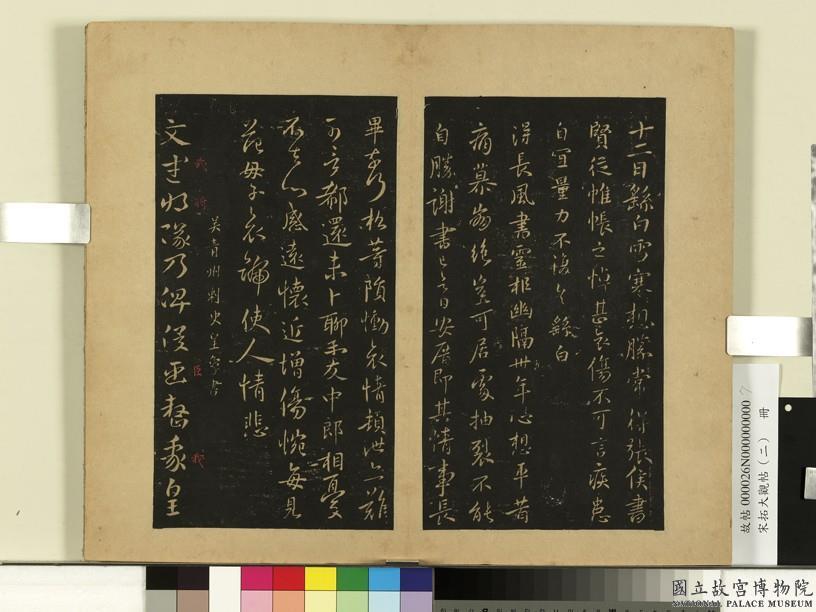 十二日繇白雪寒想勝常得張侯書
賢從帷帳之悼甚哀傷不可言疾患
自宜量力不復具繇白
得長風書靈柩幽隔卅年心想平昔
痛慕崩絕豈可居處抽裂不能
自勝謝書已具日安厝即其情事長
畢奈何松等隕慟哀情頓泄亦難
可言都還未卜聊示友中郎相憂
不去心感遠懷近增傷惋每見
范母子哀號使人情悲
吳青州刺史皇象書
文武將隊乃俾從事督象皇
武
將
臣
我
故帖000026N000000000
宋拓大觀帖(二) 冊
國立故宮博物院
NATIONAL PALACE MUSEUM